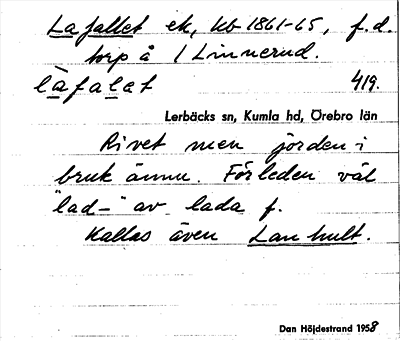 Lafallet ek, kb 1861-65, f.d.
torp å 1 Linnerud.
làfalat 419.
Lerbäcks sn, Kumla hd, Örebro län
Rivet men jorden i
bruk ännu. Förleden väl
"lad-" av lada f.
Kallas även Lanhult.
Dan Höjdestrand 1958